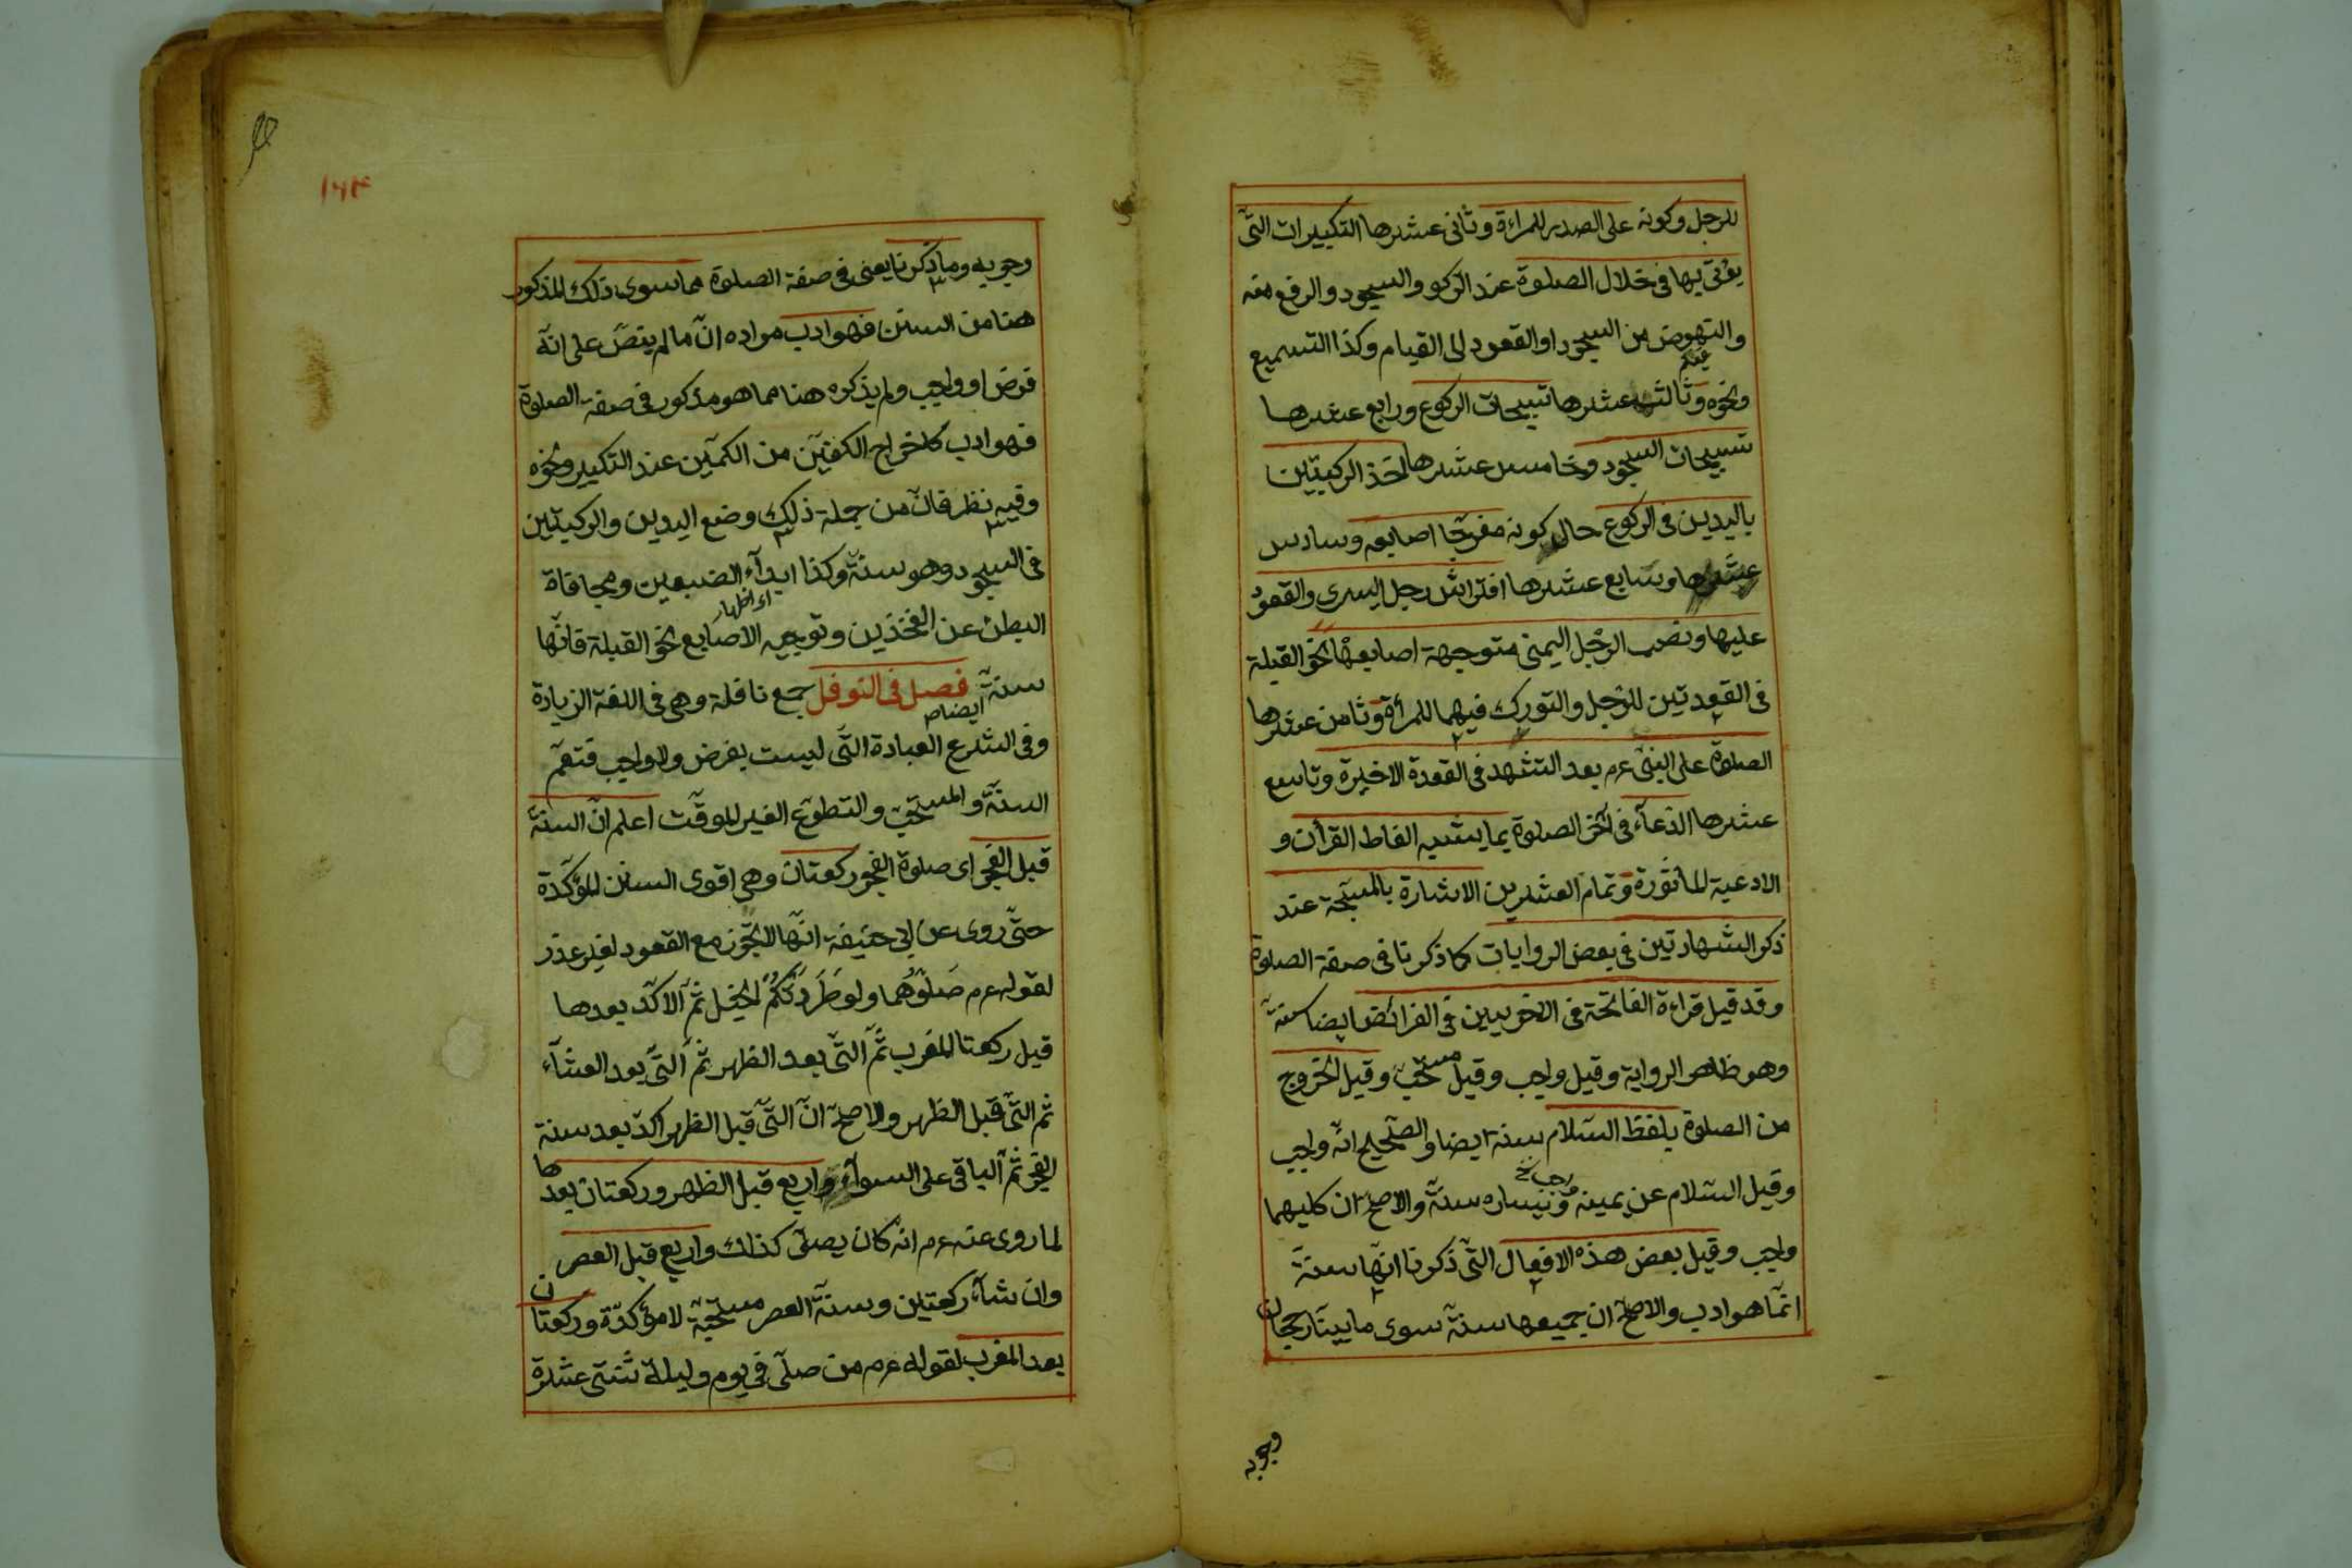 للرجل وكونه على الصدر للمراءة وثانى عشرها التكبيرات التى
يؤتى بها فى خلال الصلوة عند الركو والسجود والرفع منه
والنهوض من السجود او القعود الى القيام وكذا التسميع
ونحوه وثالث عشرها تسبيحات الركوع ورابع عشرها
تسبيحات السجود وخامس عشرها اخذ الركبتين
باليدين فى الركوع حال كونه مفرجا اصابعه وسادس
عشرها وسابع عشرها افتراش رجل اليسرى والقعود
عليها ونصب الرجل اليمنى متوجهة اصابعها نحو القبلة
فى القعدتين للرجل والتورك فيهما للمرأة وثامن عشرها
الصلوة على النبى عم بعد التشهد فى القعدة الاخيرة وتاسع
عشرها الدعآء فى آخر الصلوة بما يشبه الفاظ القرأن و
الادعية المأثورة وتمام العشرين الاشارة بالمسبحة عند
ذكر الشهادتين فى بعض الروايات كما ذكرنا فى صفة الصلوة
وقد قيل قراءة الفاتحة فى الاخريين فى الفرائض ايضا سنة
وهو ظاهر الرواية وقيل واجب وقيل مستحب وقيل الخروج
من الصلوة بلفظ السلام سنة ايضا والصحيح انه واجب
وقيل السلام عن يمينه ويساره سنة والاصح ان كليهما
واجب وقيل بعض هذه الافعال التى ذكرنا انها سنة
انما هو ادب والاصح ان جميعها سنة سوى ما بينا رجحان
وجوبه
١٦٣
وجوبه وما ذكرنا يعنى فى صفة الصلوة مما سوى ذلك المذكور
هنا من السنن فهو ادب مراده ان ما لم ينص على انه
فرض او واجب ولم يذكره هنا مما هو مذكور فى صفة الصلوة
فهو ادب كاخراج الكفين من الكمين عند التكبير ونحوه
وفيه نظر فان من جملة ذلك وضع اليدين والركبتين
فى السجود وهو سنة وكذا ابدآء الضبعين ومجافاة
اى اظهار
البطن عن الفخذين وتوجيه الاصابع نحو القبلة فانها
سنة ايضا فصل فى النوفل جمع نافلة وهى فى اللغة الزيارة
وفى الشرع العبادة التى ليست بفرض ولا واجب فتعم
السنة والمستحب والتطوع الغير الموقت اعلم ان السنة
قبل الفجر اى صلوة الفجر ركعتان وهى اقوى السنن المؤكدة
حتى روى عن ابى حنيفة انها لا تجوز مع القعود لغير عذر
لقوله عم صلوهما ولو طردتكم الخيل ثم الاكد بعدها
قيل ركعتا المغرب ثم التى بعد الظهر ثم التى بعد العشآء
ثم التى قبل الظهر والاصح ان التى قبل الظهر اكد بعد سنة
الفجر ثم الباقى على السوآء واربع قبل الظهر وركعتان بعدها
لما روى عنه عم انه كان يصلى كذلك واربع قبل العصر
وان شآء ركعتين وسنة العصر مستحبة لا مؤكدة وركعتان
بعد المغرب لقوله عم من صلى فى يوم وليلة ثنتى عشرة